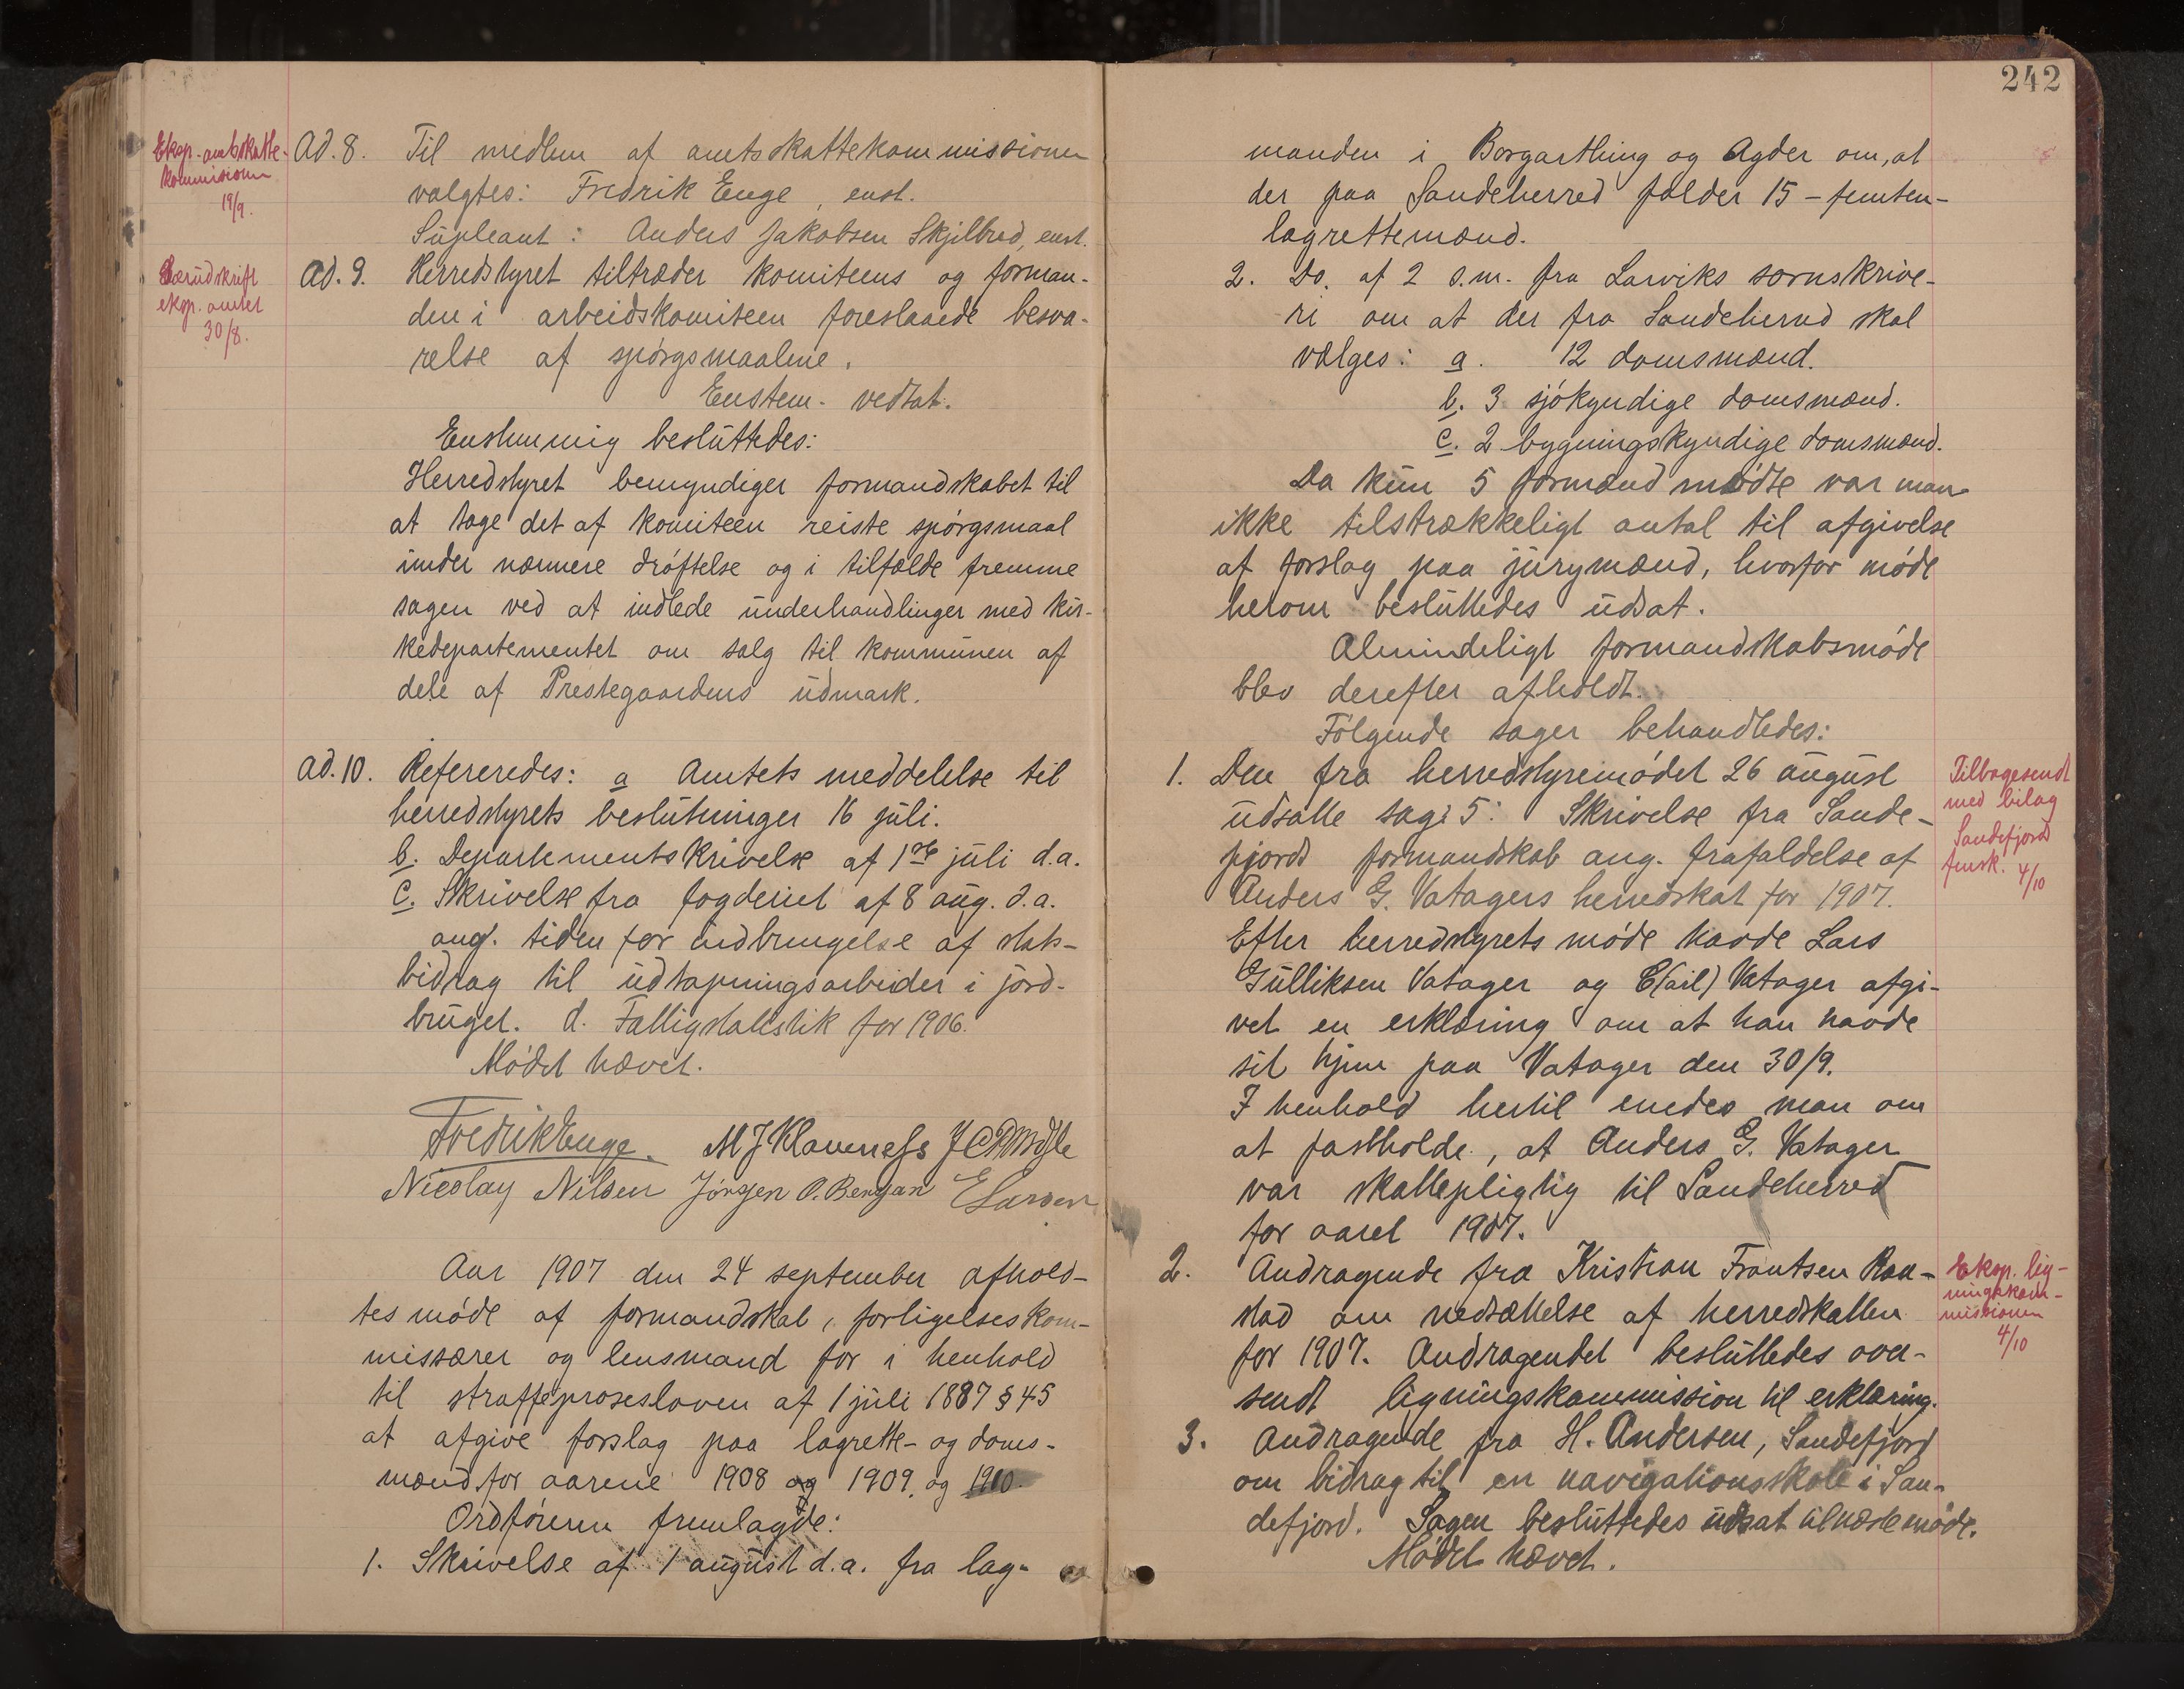 242
Eksp. amtskatte-
kommissionen
19/9.
Ad. 8. Til medlem af amtsskattekommissionen
valgtes: Fredrik Enge, enst.
Supleant: Anders Jakobsen Skjelbred, enst.
Særudskrift
eksp. amtet
30/8.
Ad. 9. Herredstyret tiltræder komiteens og forman-
den i arbeidskomiteen foreslaaede besva-
relse af spørgsmaalene.
Enstem. vedtat.
Enstemmig besluttedes:
Herredstyret bemyndiger formandskabet til
at tage det af komiteen reiste spørgsmaal
under nærmere drøftelse og i tilfælde fremme
sagen ved at indlede underhandlinger med kir-
kedepartementet om salg til kommunen af
dele af Prestegaardens udmark.
Ad. 10. Refereredes: a Amtets meddelelse til
herredstyrets beslutninger 16 juli.
b. Departementskrivelse af 1ste juli d.a.
c. Skrivelse fra fogderiet af 8 aug. d.a.
ang. tiden for indbringelse af stats-
bidrag til udtapningsarbeider i jord-
bruget. d. Fattigstatestik for 1906.
Mødet hævet.
Fredrik Enge. M J Klaveness
Nicolay Nilsen Jørgen O. Bergan E Larsen
Aar 1907 den 24 september afhold-
tes møde af formandskab, forligelseskom-
missærer og lensmand for i henhold
til straffeprosesloven af 1 juli 1887 § 45
at afgive forslag paa lagrette- og doms-
mænd for aarene 1908 og 1909. og 1910.
Ordføreren fremlagde:
1. Skrivelse af 1 august d.a. fra lag-
manden i Borgarthing og Agder om, at
der paa Sandeherred falder 15 - femten -
lagrettemænd.
2. Do. af 2 s.m. fra Larviks sornskrive-
ri om at der fra Sandeherred skal
vælges: a. 12 domsmænd.
b. 3 sjøkyndige domsmænd.
c. 2 bygningskyndige domsmænd.
Da kun 5 formænd mødte var man
ikke tilstrækkeligt antal til afgivelse
af forslag paa jurymænd, hvorfor møde
herom besluttedes udsat.
Almindeligt formandskabsmøde
blev derefter afholdt.
Følgende sager behandledes:
1. Den fra herredstyremødet 26 august
udsatte sag: 5: Skrivelse fra Sande-
fjords formandskab ang. frafaldelse af
Anders G. Vatagers herredskat for 1907.
Efter herredstyrets møde havde Lars
Gulliksen Vatager og C(aril) Vatager afgi-
vet en erklæring om at han havde
sit hjem paa Vatager den 30/9.
I henhold hertil enedes man om
at fastholde, at Anders G. Vatager
var skattepligtig til Sandeherred
for aaret 1907.
Tilbagesendt
med bilag
Sandefjord
fmsk. 4/10
2. Andragende fra Kristian Frantsen Raa-
stad om nedsættelse af herredskatten
for 1907. Andragendet besluttedes over-
sendt ligningskommission til erklæring.
Eksp. lig-
ningskom-
missionen
4/10
3. Andragende fra H. Andersen, Sandefjord
om bidrag til en navigationsskole i San-
defjord. Sagen besluttedes udsat til næste møde.
Mødet hævet.